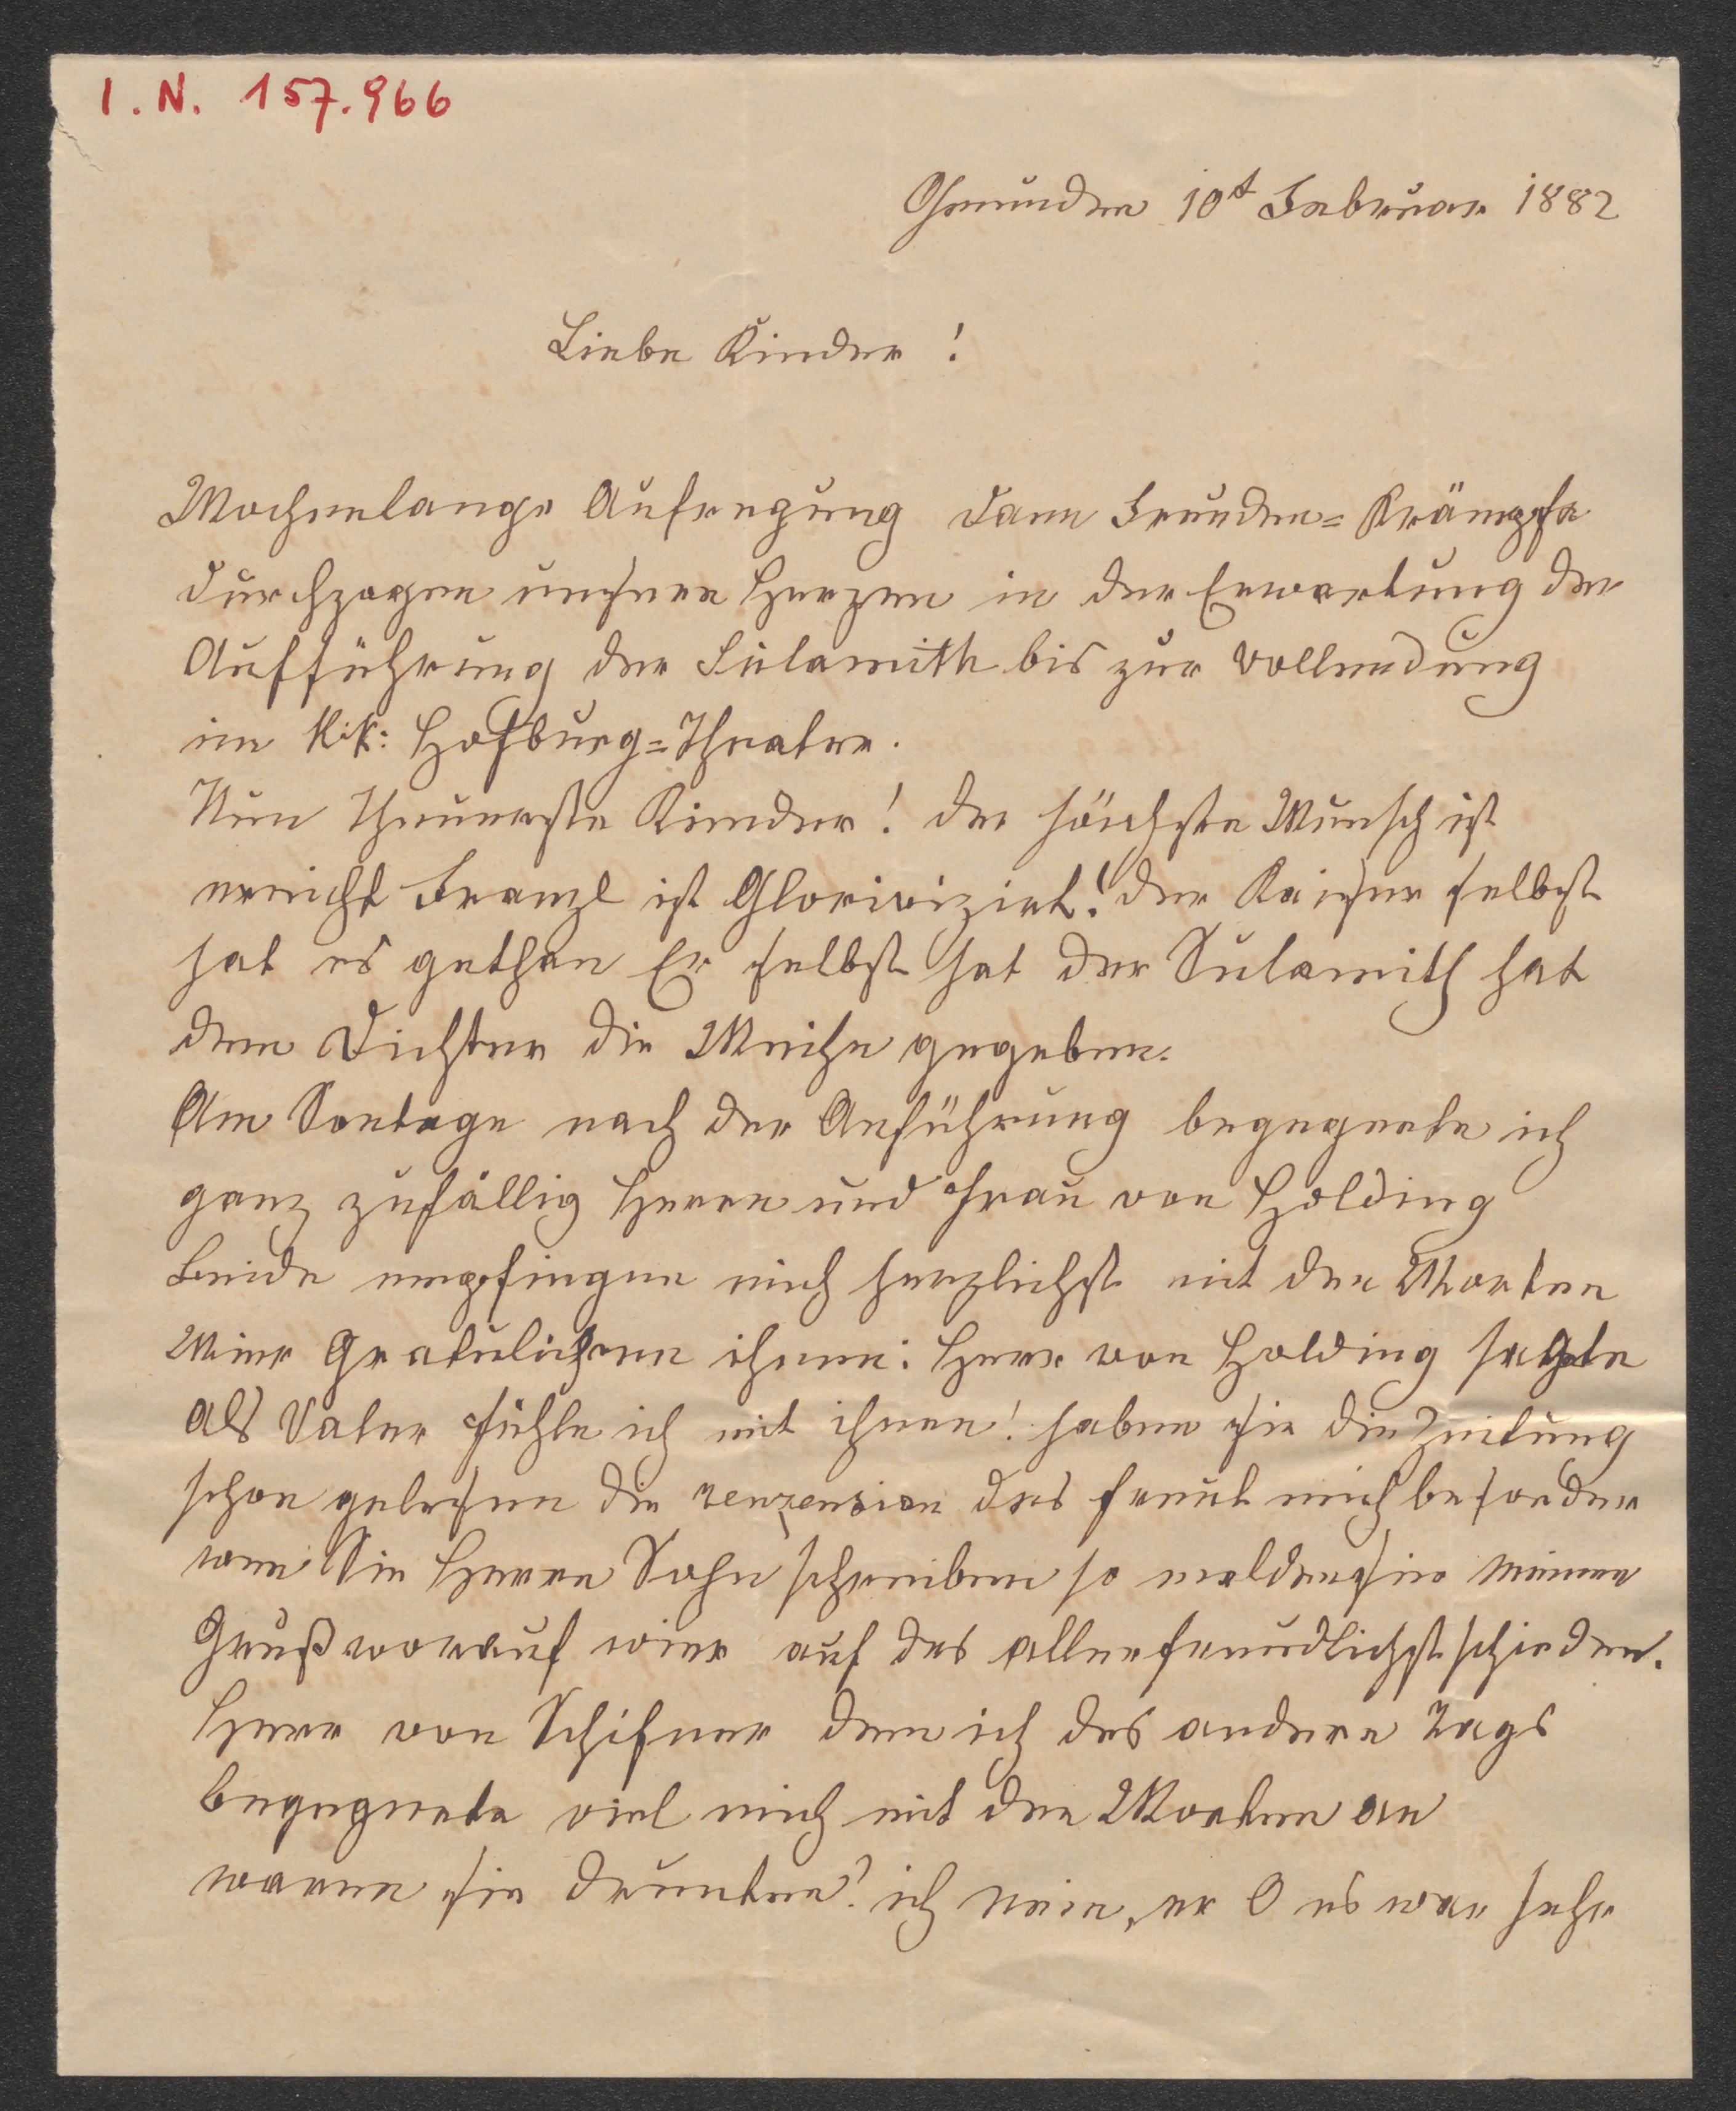 I. N. 157.966
Gmunden 10t Februar 1882
Liebe Kinder!
Wochenlange Aufregung dann Freuden=Krämpfe
durchzogen unsere Herzen in der Erwartung der
Aufführung der Sulamith bis zur Vollendung
im k:k: Hofburg=Theater.
Nun Theuerste Kinder! der höichste Wunsch ist
erreicht Franzl ist Glorivizirt! der Kaiser selbst
hat es gethan Er selbst hat der Sulamith hat
dem Dichter die Weihe gegeben.
Am Sontage nach der Aufführung begegnete ich
ganz zufällig Herrn und Frau von Holding
Beide empfingen mich herzlichst mit den Worten
Wier Gratulieren ihnen: Herr von Holding sagte
als Vater fühle ich mit ihnen! haben sie die Zeitung
schon gelesen die renzension das freut mich besonder
wen Sie Herrn Sohn schreiben so melden sie meinen
Gruß worauf wier auf das allerfreundlichst schieden.
Herr von Schifner dem ich des andern Tags
begegnete viel mich mit den Worten an
waren sie drunten? ich nein, er O es war sehr